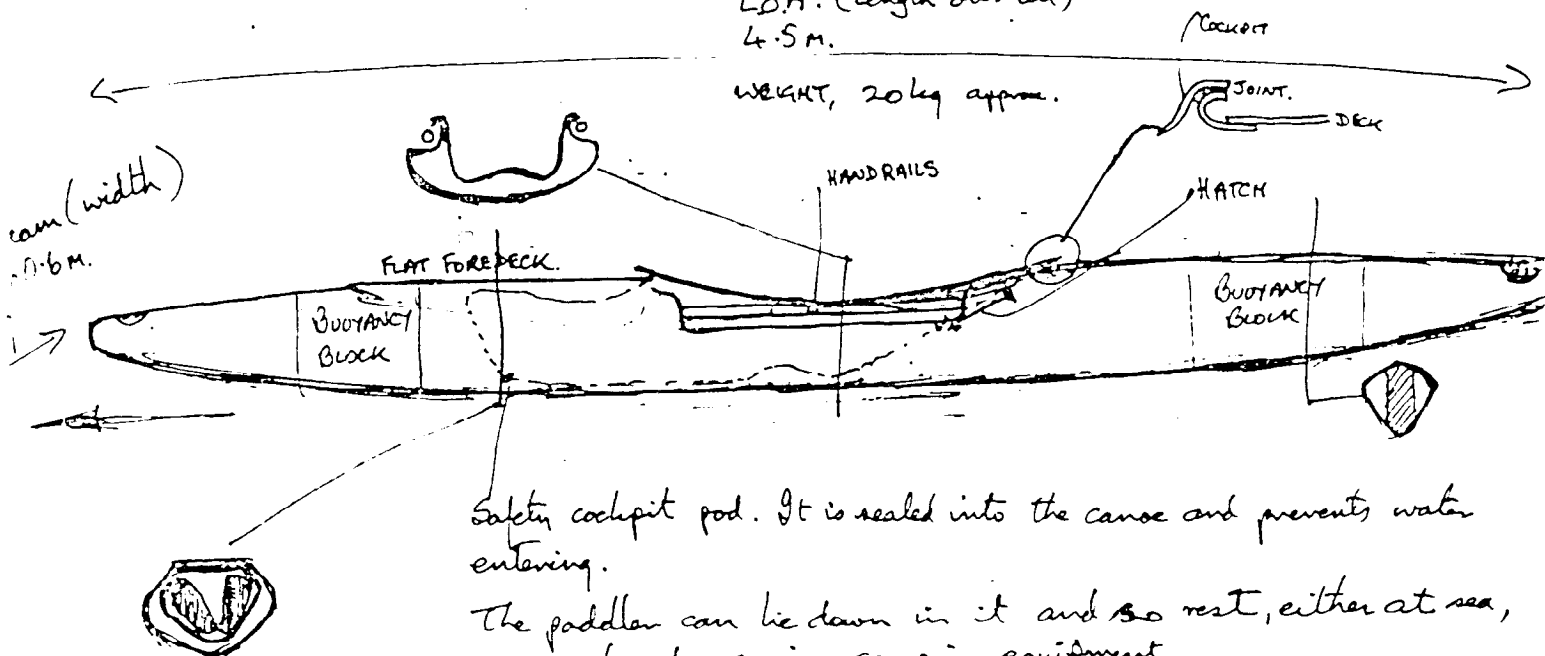 L.O.A. (Length over all)
4.5 M.
COCKPIT
WEIGHT, 20 kg approx.
JOINT.
DECK
(width)
0.6 M.
HANDRAILS
HATCH
FLAT FOREDECK.
BUOYANCY
BLOCK
BUOYANCY
BLOCK
Safety cockpit pod. It is sealed into the canoe and prevents water
entering.
The paddler can lie down in it and so rest, either at sea,
equipment